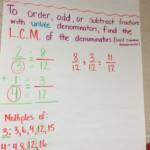 To order, add, or subtract fractions
with unlike denominators, find the
L.C.M. of the denominators (least common
2/3 = 8/12
8/12 + 3/12 = 11/12
+ 1/4 = 3/12
Multiples of
3: 3, 6, 9, 12, 15
4: 4, 8, 12, 16